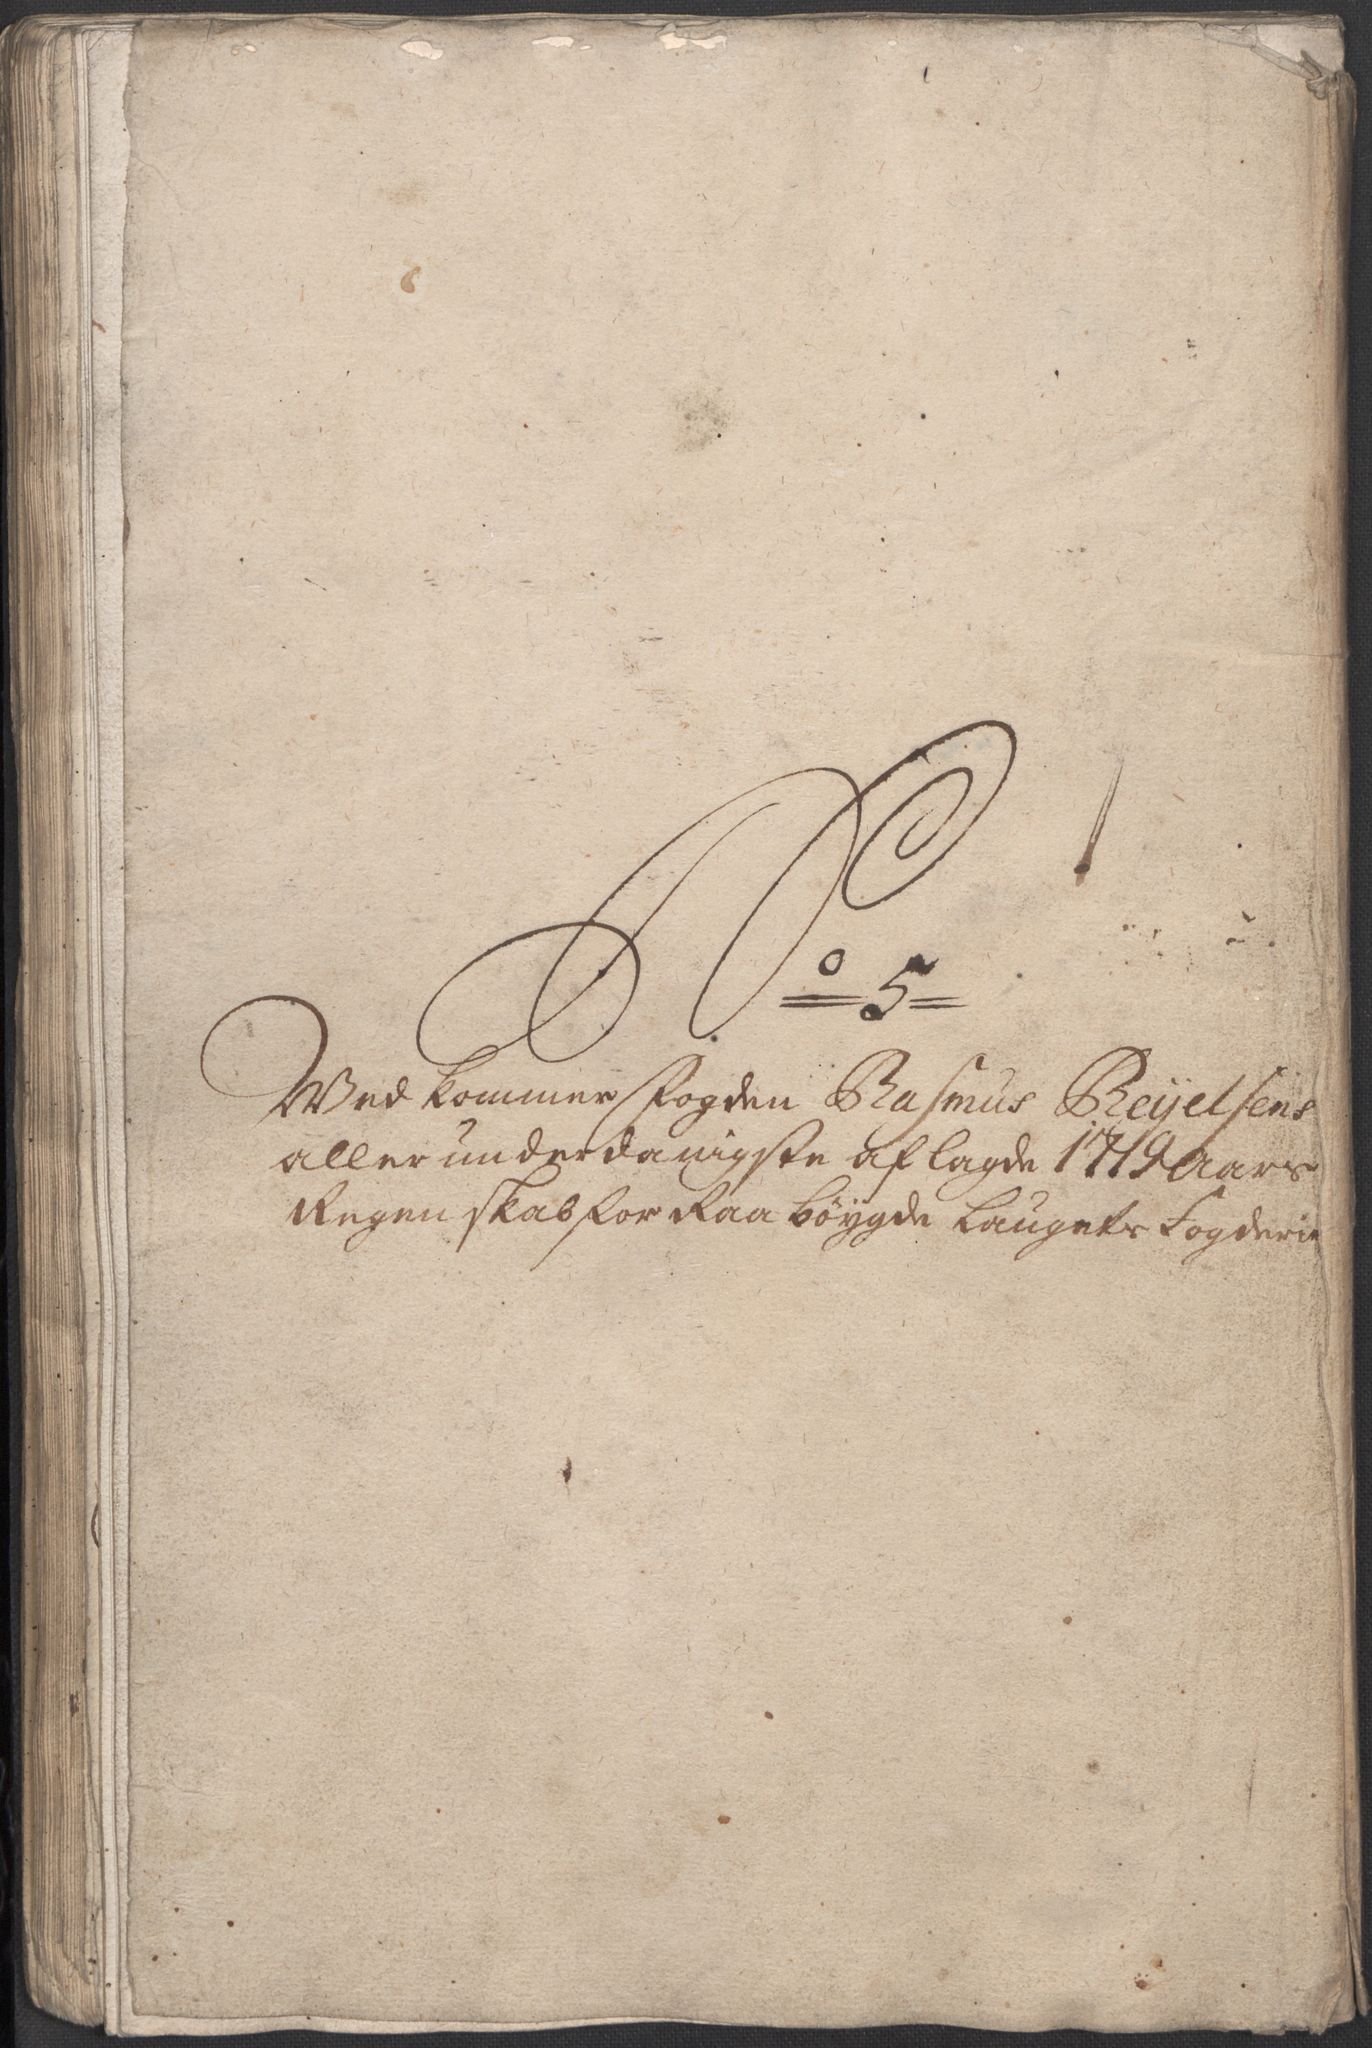 No 5
Wedkommer Fogden Rasmus Reÿelsens
allerunderdanigste aflagde 1719 Aars
Regenskab for Raabÿgde Laugets Fogderie